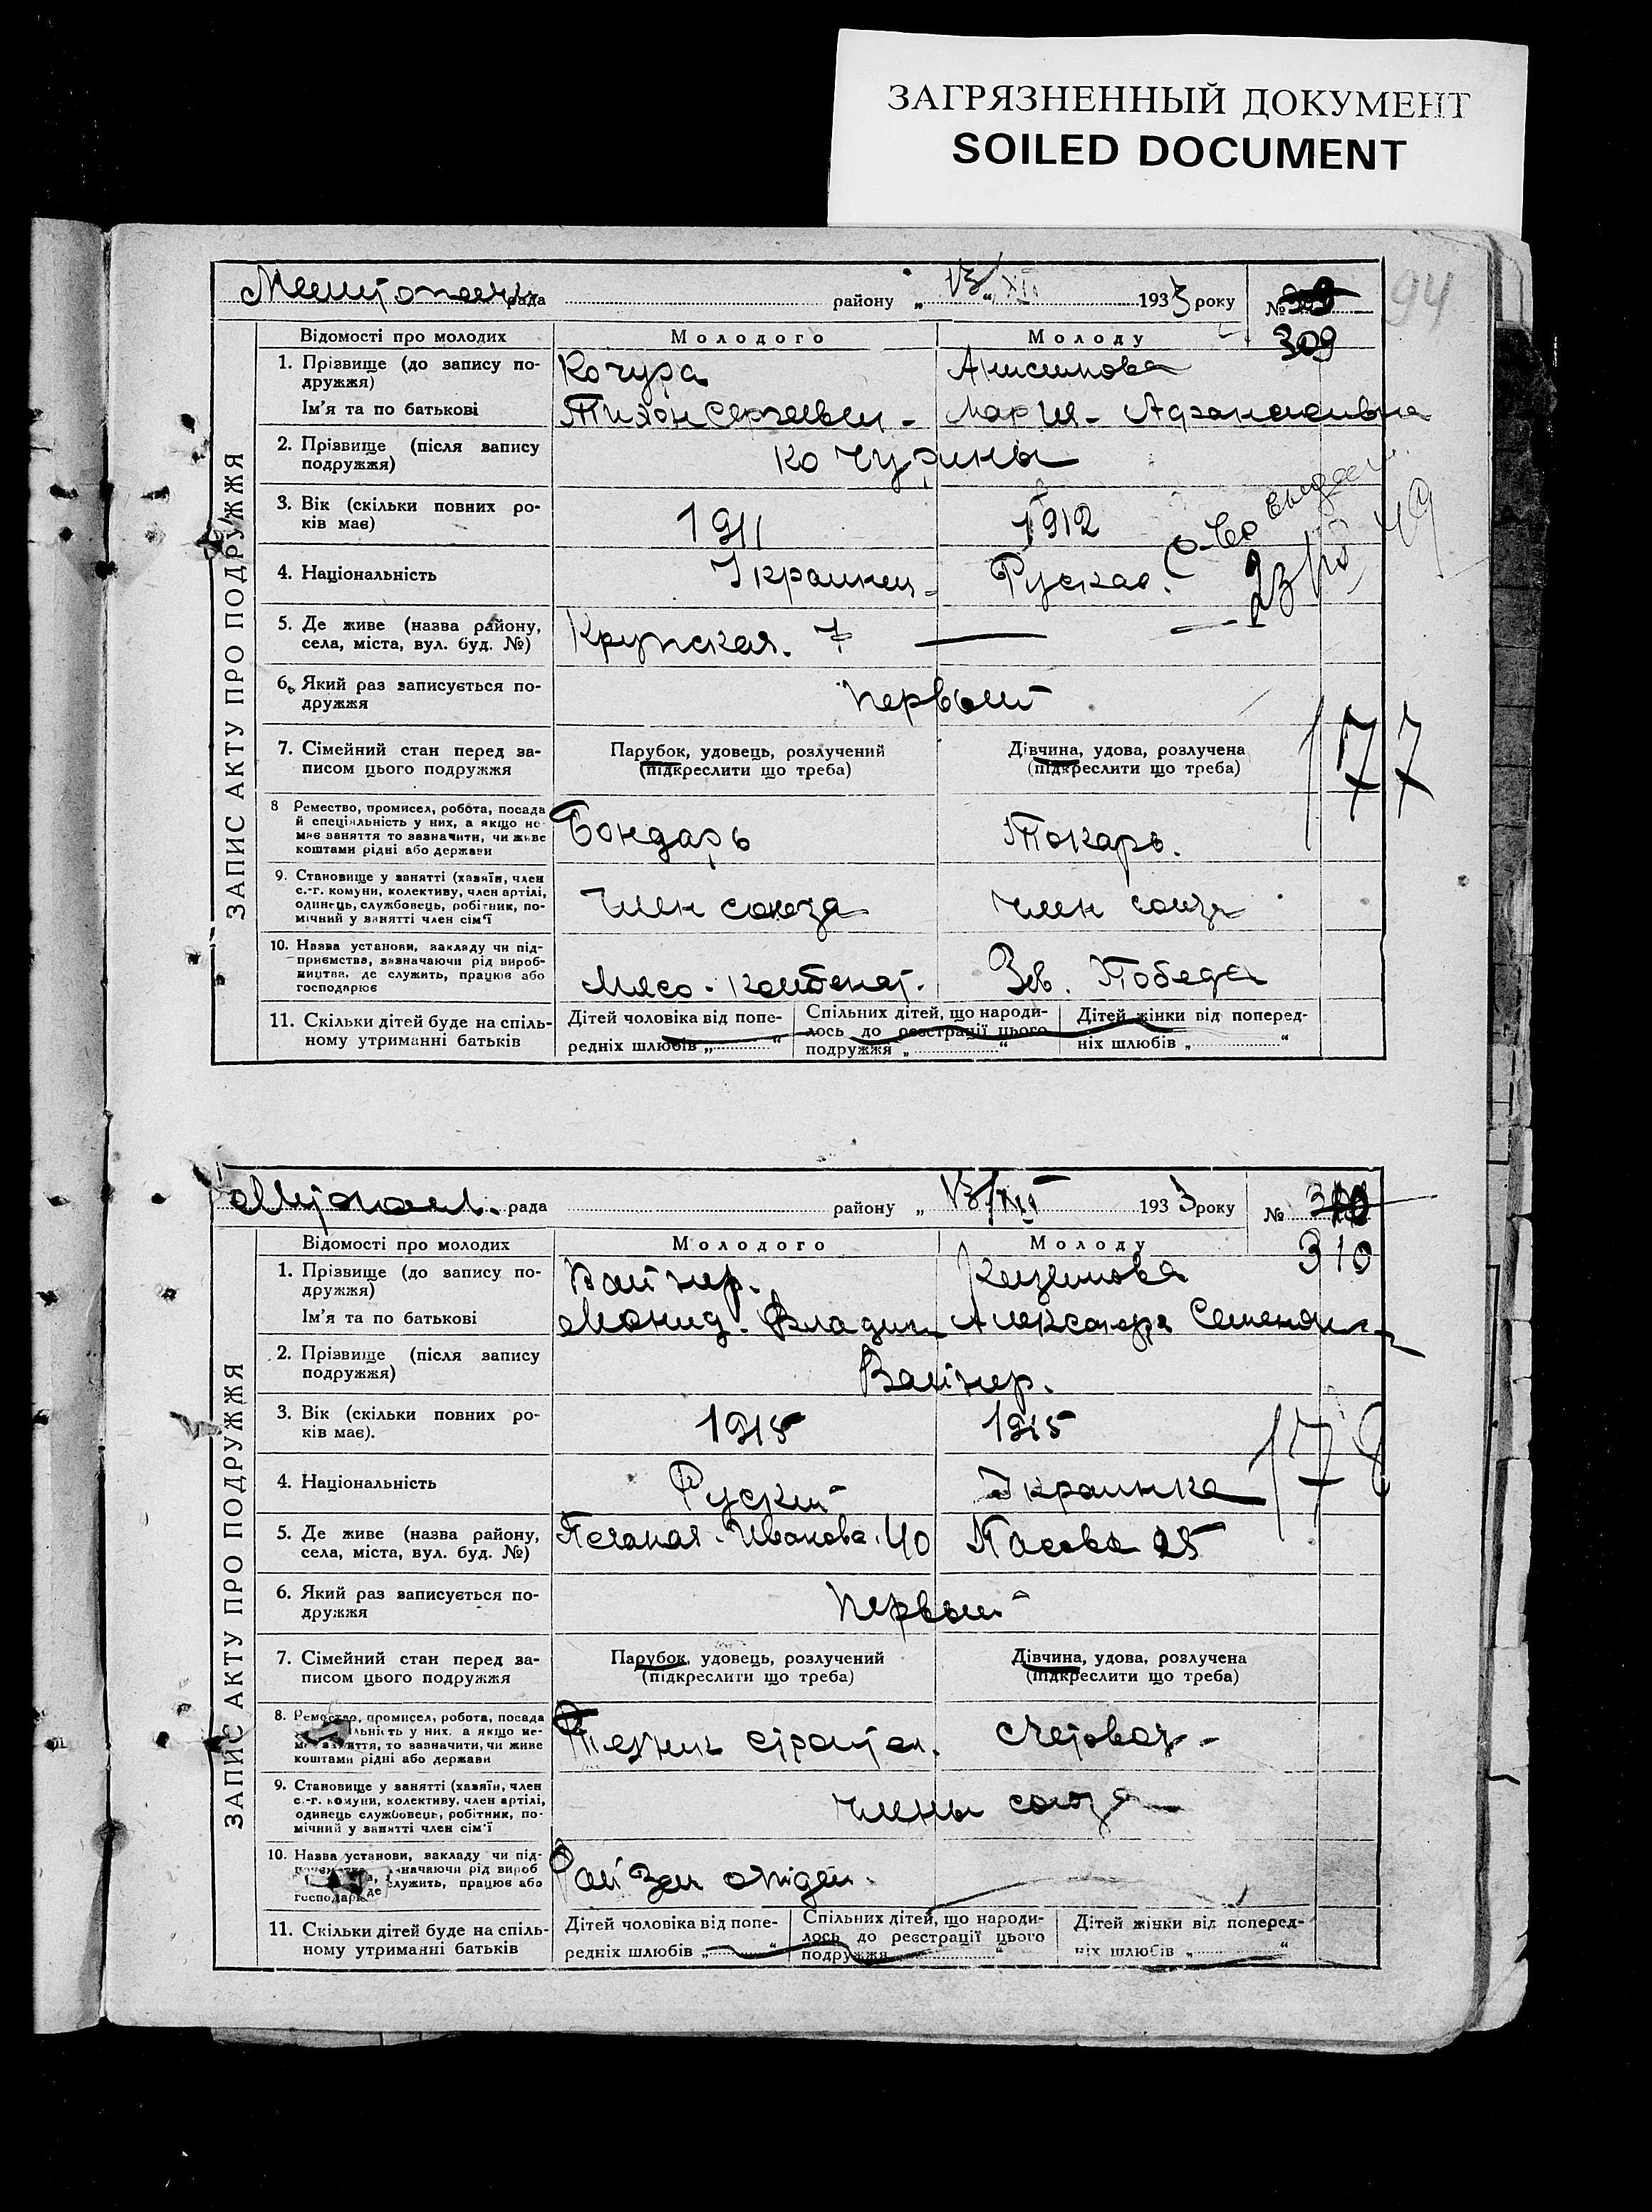 ЗАГРЯЗНЕННЫЙ ДОКУМЕНТ
SOILED DOCUMENT
94
рада району „ 13/XII 1933 року №
309
Відомості про молодих Молодого Молоду
1. Прізвище (до запису по-
дружжя)
Кочура
Ім'я та по батькові
Тихон Сергеевич - Мария - Афанасиевна
2. Прізвище (після запису
подружжя)
Кочурины
3. Вік (скільки повних ро-
ків має)
1911 1912
4. Національність
Украинец Руская.
5. Де живе (назва району,
села, міста, вул. буд. №)
Крупская. 7
6. Який раз записується по-
дружжя
первый
177
7. Сімейний стан перед за-
писом цього подружжя
Парубок, удовець, розлучений
(підкреслити що треба)
Дівчина, удова, розлучена
(підкреслити що треба)
8 Ремество, промисел, робота, посада
й спеціяльність у них, а якщо не
має заняття то зазначити, чи живе
коштами рідні або держави
Бондарь Токарь.
9. Становище у занятті (хазяїн, член
с.-г. комуни, колективу, член артілі,
одинець, службовець, робітник, по-
мічний у занятті член сім'ї
Член союза член союза
10. Назва установи, закладу чи під-
приємства, зазначаючи рід вироб-
ництва, де служить, працює або
господарює
Мясо-комбенат. Зав. Победа
11. Скільки дітей буде на спіль-
ному утриманні батьків
Дітей чоловіка від попе-
редніх шлюбів „ “
Спільних дітей, що народи-
лось до реєстрації цього
подружжя „ “
Дітей жінки від поперед-
ніх шлюбів „ “
ЗАПИС АКТУ ПРО ПОДРУЖЖЯ
рада району „ 13/XII 1933 року №
310
Відомості про молодих Молодого Молоду
1. Прізвище (до запису по-
дружжя)
Вайнер.
Ім'я та по батькові
Александра
2. Прізвище (після запису
подружжя)
Вайнер.
3. Вік (скільки повних ро-
ків має).
1915 1915
178
4. Національність
Руский Украинка
5. Де живе (назва району,
села, міста, вул. буд. №)
Иванова. 40 25
6. Який раз записується по-
дружжя
первый
7. Сімейний стан перед за-
писом цього подружжя
Парубок, удовець, розлучений
(підкреслити що треба)
Дівчина, удова, розлучена
(підкреслити що треба)
8. Ремество, промисел, робота, посада
а якщо не
заняття, то зазначити, чи живе
коштами рідні або держави
Техник счетовод -
9. Становище у занятті (хазяїн, член
с.-г. комуни, колективу, член артілі,
одинець службовець, робітник, по-
мічний у занятті член сім'ї
Члены союза
10. Назва установи, закладу чи під-
зазначаючи рід вироб
служить, працює або
Рай зем
11. Скільки дітей буде на спіль-
ному утриманні батьків
Дітей чоловіка від попе-
редніх шлюбів „ “
Спільних дітей, що народи-
лось до реєстрації цього
подружжя „ “
Дітей жінки від поперед-
ніх шлюбів „ “
ЗАПИС АКТУ ПРО ПОДРУЖЖЯ